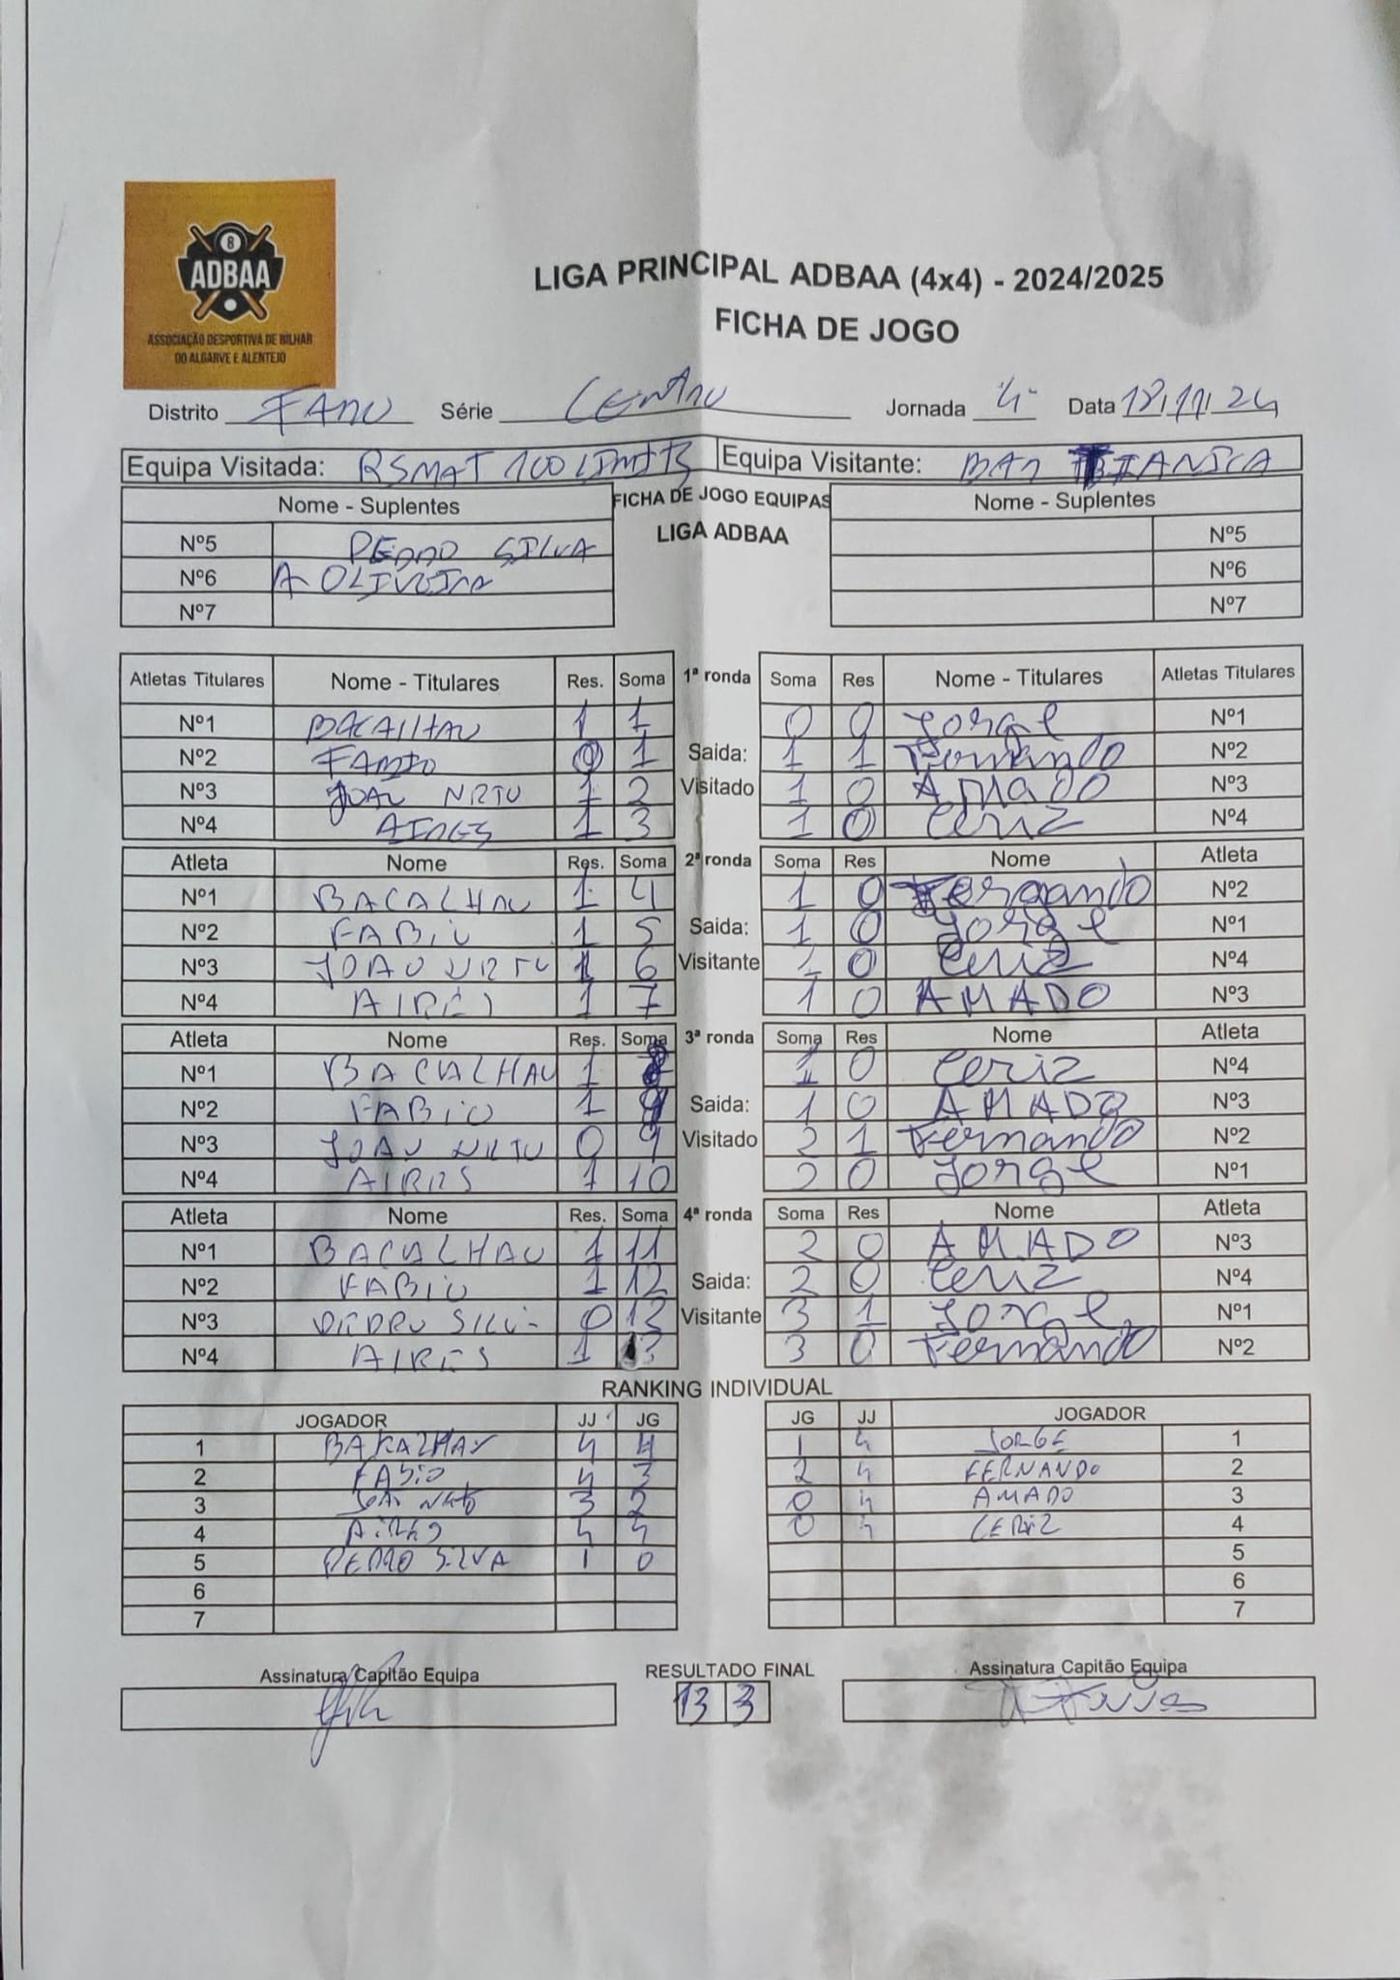 8
ADBAA
ASSOCIAÇÃO DESPORTIVA DE BILHAR
DO ALGARVE E ALENTEJO
LIGA PRINCIPAL ADBAA (4x4) - 2024/2025
FICHA DE JOGO
Distrito FARO Série CENTRO Jornada 4ª Data 18/11/24
Equipa Visitada: RSMAT 100 LIMITS Equipa Visitante: BAR TITANICA
Nome - Suplentes FICHA DE JOGO EQUIPAS Nome - Suplentes
LIGA ADBAA
Nº5 PEDRO SILVA Nº5
Nº6 A OLIVEIRA Nº6
Nº7 Nº7
Atletas Titulares Nome - Titulares Res. Soma 1ª ronda Soma Res Nome - Titulares Atletas Titulares
Nº1 BACALHAU 1 1 0 0 Jorge Nº1
Nº2 FABIO 0 1 Saida: 1 1 Fernando Nº2
Nº3 JOAO NRTO 1 2 Visitado 1 0 Amado Nº3
Nº4 AIRES 1 3 1 0 Ceriz Nº4
Atleta Nome Res. Soma 2ª ronda Soma Res Nome Atleta
Nº1 BACALHAU 1 4 1 0 Fernando Nº2
Nº2 FABIO 1 5 Saida: 1 0 Jorge Nº1
Nº3 JOAO NRTO 1 6 Visitante 1 0 Ceriz Nº4
Nº4 AIRES 1 7 1 0 AMADO Nº3
Atleta Nome Res. Soma 3ª ronda Soma Res Nome Atleta
Nº1 BACALHAU 1 8 1 0 Ceriz Nº4
Nº2 FABIO 1 9 Saida: 1 0 AMADO Nº3
Nº3 JOAO NRTO 0 9 Visitado 2 1 Fernando Nº2
Nº4 AIRES 1 10 2 0 Jorge Nº1
Atleta Nome Res. Soma 4ª ronda Soma Res Nome Atleta
Nº1 BACALHAU 1 11 2 0 AMADO Nº3
Nº2 FABIO 1 12 Saida: 2 0 Ceriz Nº4
Nº3 PEDRO SILV- 0 12 Visitante 3 1 Jorge Nº1
Nº4 AIRES 1 13 3 0 Fernando Nº2
RANKING INDIVIDUAL
JOGADOR JJ JG JG JJ JOGADOR
1 BAKALHAU 4 4 1 4 JORGE 1
2 FABIO 4 3 2 4 FERNANDO 2
3 JOAO NRTO 3 2 0 4 AMADO 3
4 AIRES 4 4 0 4 CERIZ 4
5 PEDRO SILVA 1 0 5
6 6
7 7
Assinatura Capitão Equipa RESULTADO FINAL Assinatura Capitão Equipa
13 3